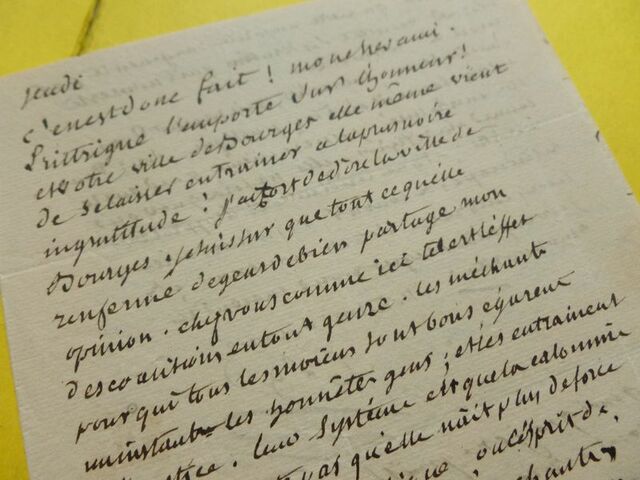 jeudi
C'enest donc fait ! mon cher ami.
L'inttrigue l'emporte sur l'honneur !
et votre ville de Bourges elle même vient
de se laisser entrainer a la plus noire
ingratitude ! j'ai tort de dire la ville de
Bourges. je suis sur que tout ce qu'elle
renferme de gens de bien partage mon
opinion. chez vous comme ici tel est l'effet
des coalitions en tout genre. les méchants
pour qui tous les moiens sont bons égarent
un instant les honnêtes gens ; et les entrainent
leur systéme est que la calomnie
pas qu'elle n'ait plus de force
ou l'esprit de